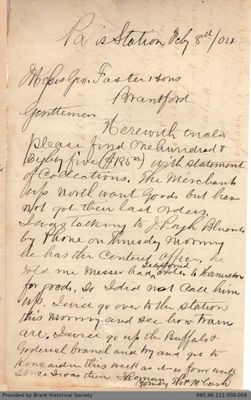 Paris Station Feby 8th/04
Messrs Geo. Foster & Sons
Brantford
Gentlemen
Herewith enclo
please find One hundred &
Eighty five ($185.00) with statement
of Collections. The Merchants
up north want Goods but have
not got their last orders.
I was talking to J. Pugh
by Phone on Thursday Morning
he has the Central office. he
told me Messer had to Hamilton
for goods. So I did not Call him
up. I will go over to the Station
this Morning and see how trains
are. I will go up the Buffalo &
Goderich branch and try and get to
this week as it is four weeks
since I was there
Provided by Brant Historical Society
985.86.121.608.006